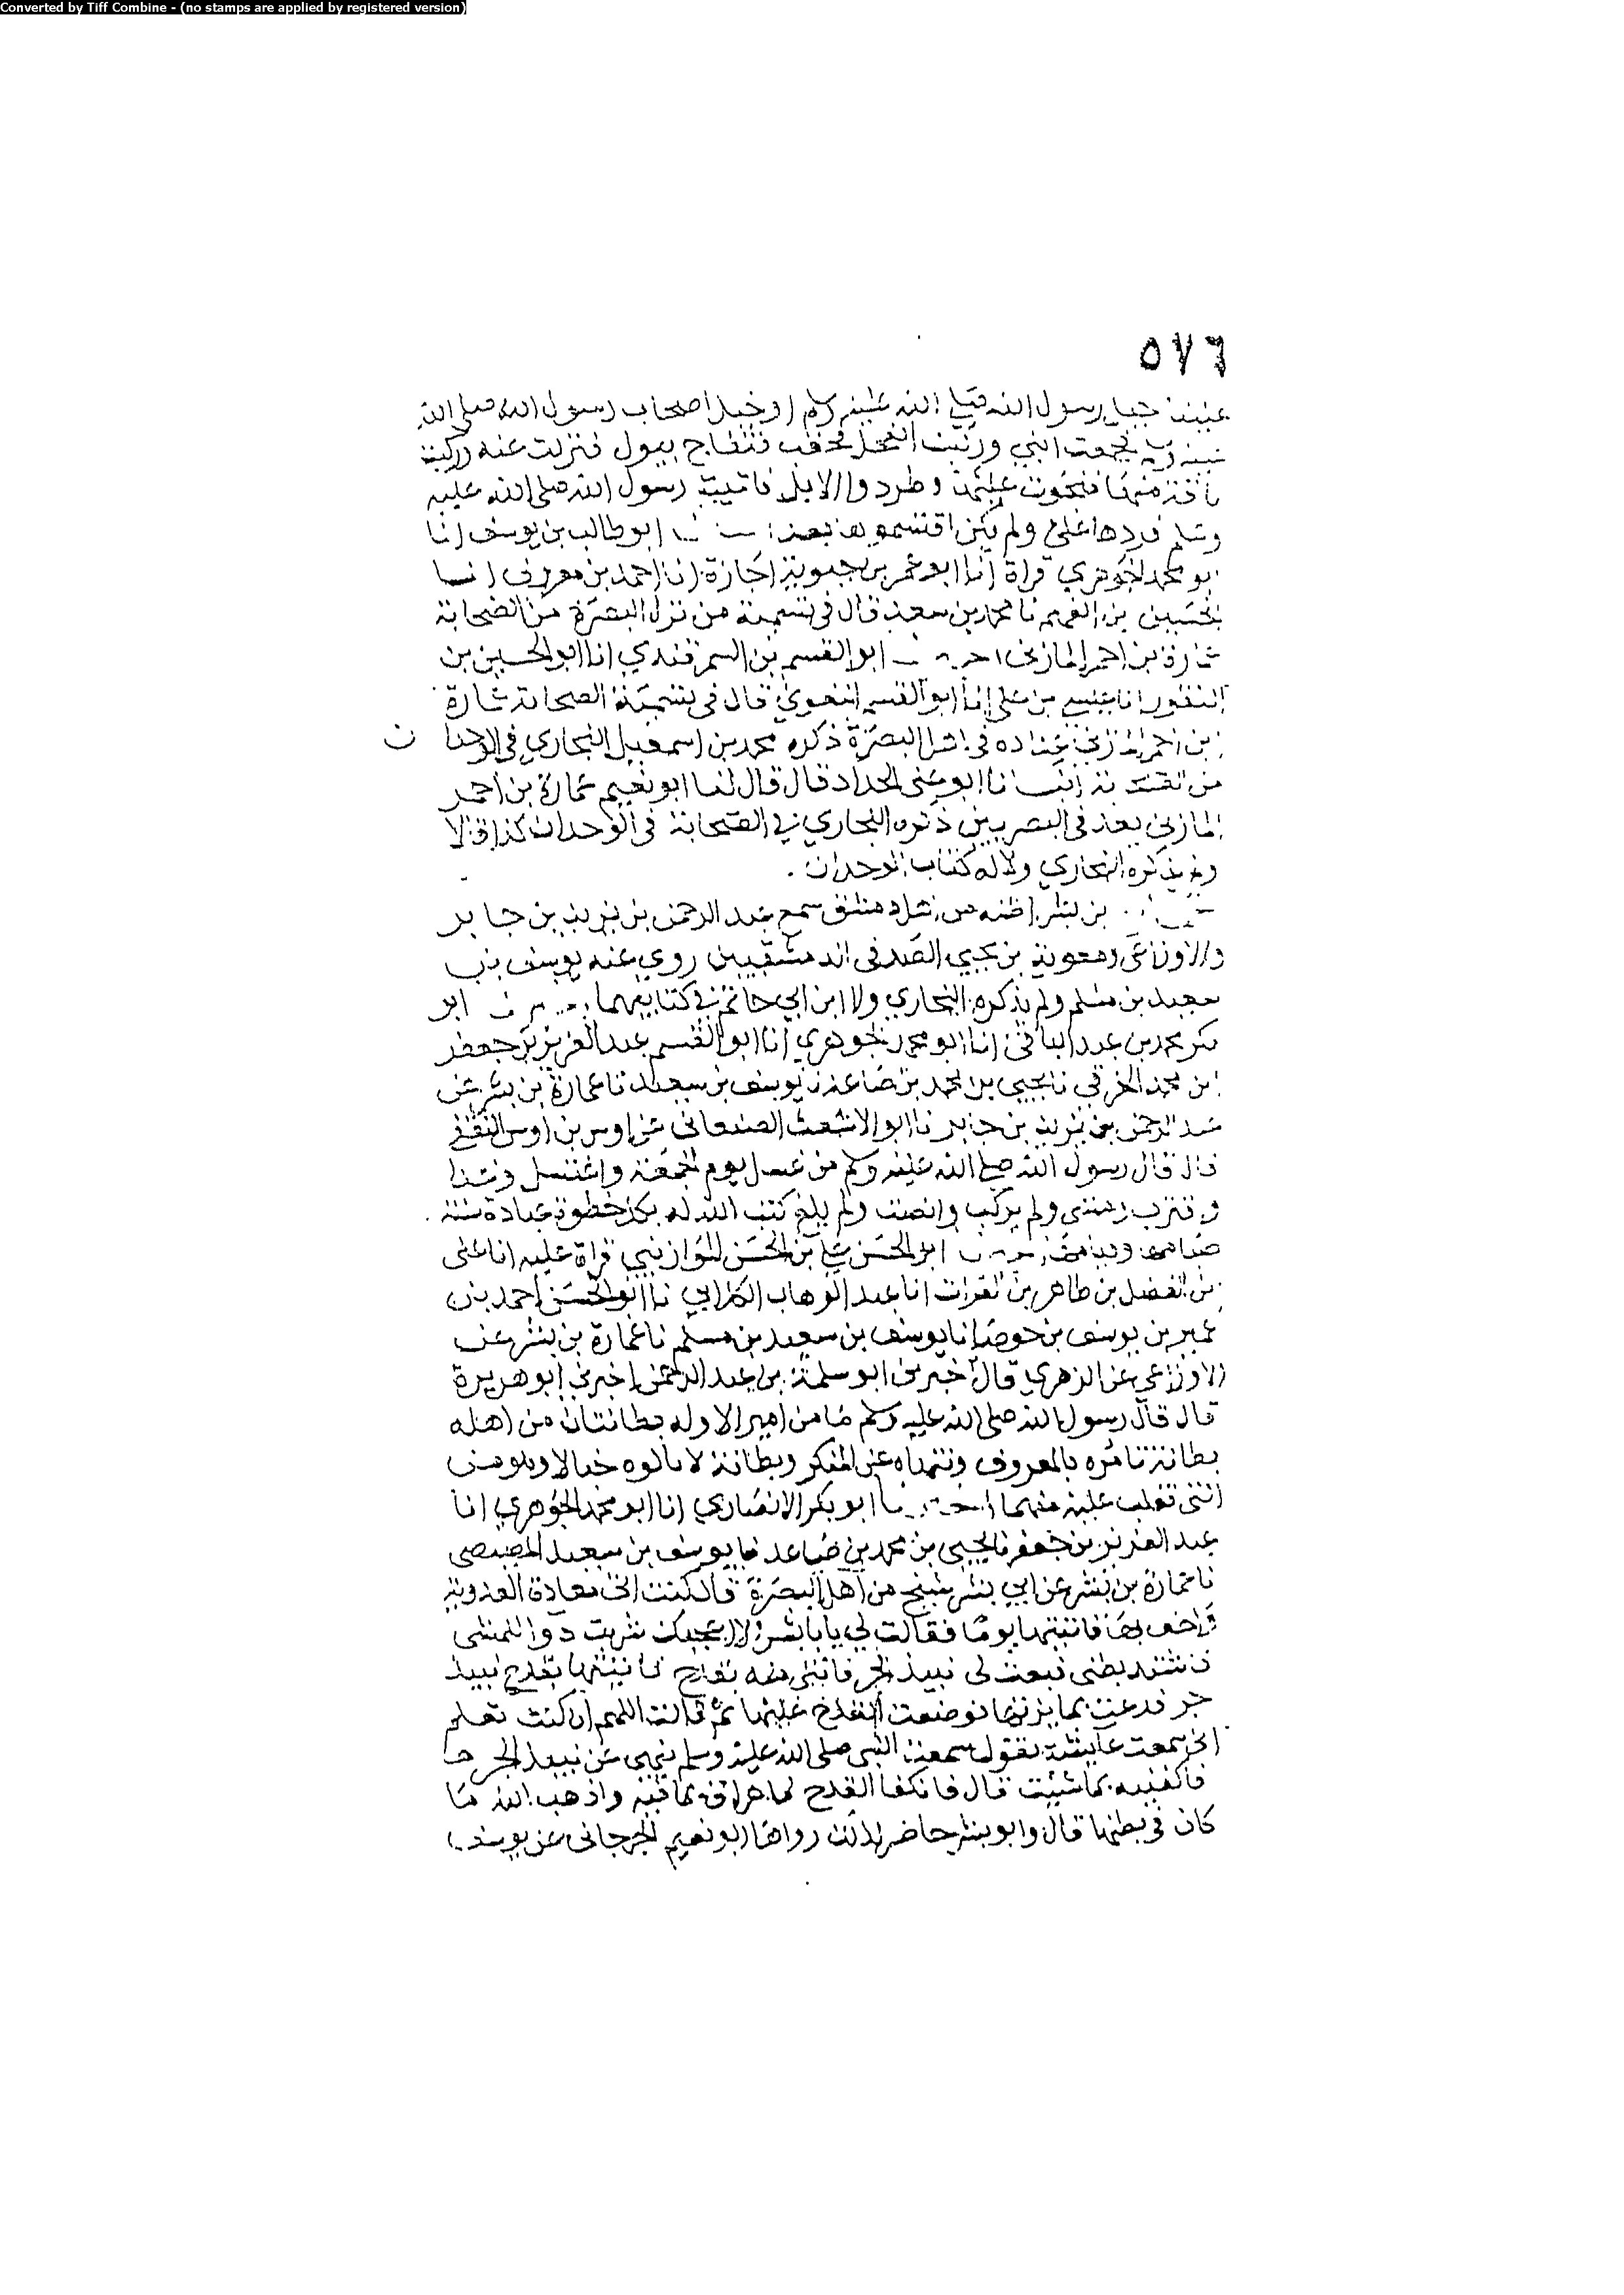 Converted by Tiff Combine - (no stamps are applied by registered version)
٥٧٦
علينا خيل رسول الله صلى الله عليه وسلم او خيل اصحاب رسول الله صلى الله
عليه وسلم فجمعت ابلي وركبت الفحل فتفاج يبول فنزلت عنه وركبت
ناقة منها فنجوت عليها وطردوا الابل فاتيت رسول الله صلى الله عليه
وسلم فردها علي ولم يكن اقتسموها بعد ابو طالب بن يوسف انا
ابو محمد الجوهري قراة انا ابو عمر بن حيوية اجازة انا احمد بن معروف انا
الحسين بن الفهم نا محمد بن سعد قال في تسمية من نزل البصرة من الصحابة
عمارة بن احمر المازني ابو القسم بن السمرقندي انا ابو الحسين بن
النقور انا عيسى بن علي انا ابو القسم البغوي قال في تسمية الصحابة عمارة
بن احمر المازني عداده في اهل البصرة ذكره محمد بن اسمعيل البخاري في الوحدان
من انا ابو علي الحداد قال قال لنا ابو نعيم عمارة بن احمر
المازني يعد في البصريين ذكره البخاري في الصحابة في الوحدان كذا قالا
ولم يذكره البخاري ولا له كتاب الوحدان .
بن بشر اظنه من اهل دمشق سمع عبد الرحمن بن يزيد بن جابر
والاوزاعي ومعوية بن يحيى الصدفي الدمشقيين روى عنه يوسف بن
سعيد بن مسلم ولم يذكره البخاري ولا ابن ابي حاتم في كتابيهما ابو
بكر محمد بن عبد الباقي انا ابو محمد الجوهري انا ابو القسم عبد العزيز بن جعفر
ابن محمد الخرقي نا يحيى بن محمد بن صاعد نا يوسف بن سعيد نا عمارة بن بشر عن
عبد الرحمن بن يزيد بن جابر نا ابو الاشعث الصنعاني عن اوس بن اوس الثقفي
قال قال رسول الله صلى الله عليه وسلم من غسل يوم الجمعة واغتسل وغدا
واقترب ومشى ولم يركب وانصت ولم يلغ كتب الله له بكل خطوة عبادة سنة
صيامها وقيامها ابو الحسن علي بن الحسن الموازيني قراة عليه انا علي
بن الفضل بن طاهر بن الفرات انا عبد الوهاب الكلابي نا ابو الحسن احمد بن
عمير بن يوسف بن حوصا نا يوسف بن سعيد بن مسلم نا عمارة بن بشر عن
الاوزاعي عن الزهري قال اخبرني ابو سلمة بن عبد الرحمن اخبرني ابو هريرة
قال قال رسول الله صلى الله عليه وسلم ما من امير الا وله بطانتان من اهله
بطانة تامره بالمعروف وتنهاه عن المنكر وبطانة لا تالوه خبالا وهو من
التي تغلب عليه منهما ابو بكر الانصاري انا ابو محمد الجوهري انا
عبد العزيز بن جعفر نا يحيى بن محمد بن صاعد نا يوسف بن سعيد المصيصي
نا عمارة بن بشر عن ابي بشر شيخ من اهل البصرة قال كنت اتي معاذة العدوية
واحف بها فاتيتها يوما فقالت لي يا با بشر الا اعجبك شربت دوا للمشي
فاشتد بطني فنعت لي نبيذ الجر فاتني منه بقدح فاتيتها بقدح نبيذ
جر فدعت بمايدتها فوضعت القدح عليها ثم قالت اللهم ان كنت تعلم
اني سمعت عايشة تقول سمعت النبي صلى الله عليه وسلم ينهى عن نبيذ الجر
فاكفنيه بما شئت قال فانكفا القدح فاهراق ما فيه واذهب الله ما
كان في بطنها قال وابو بشر حاضر لذلك رواها ابو نعيم الجرجاني عن يوسف